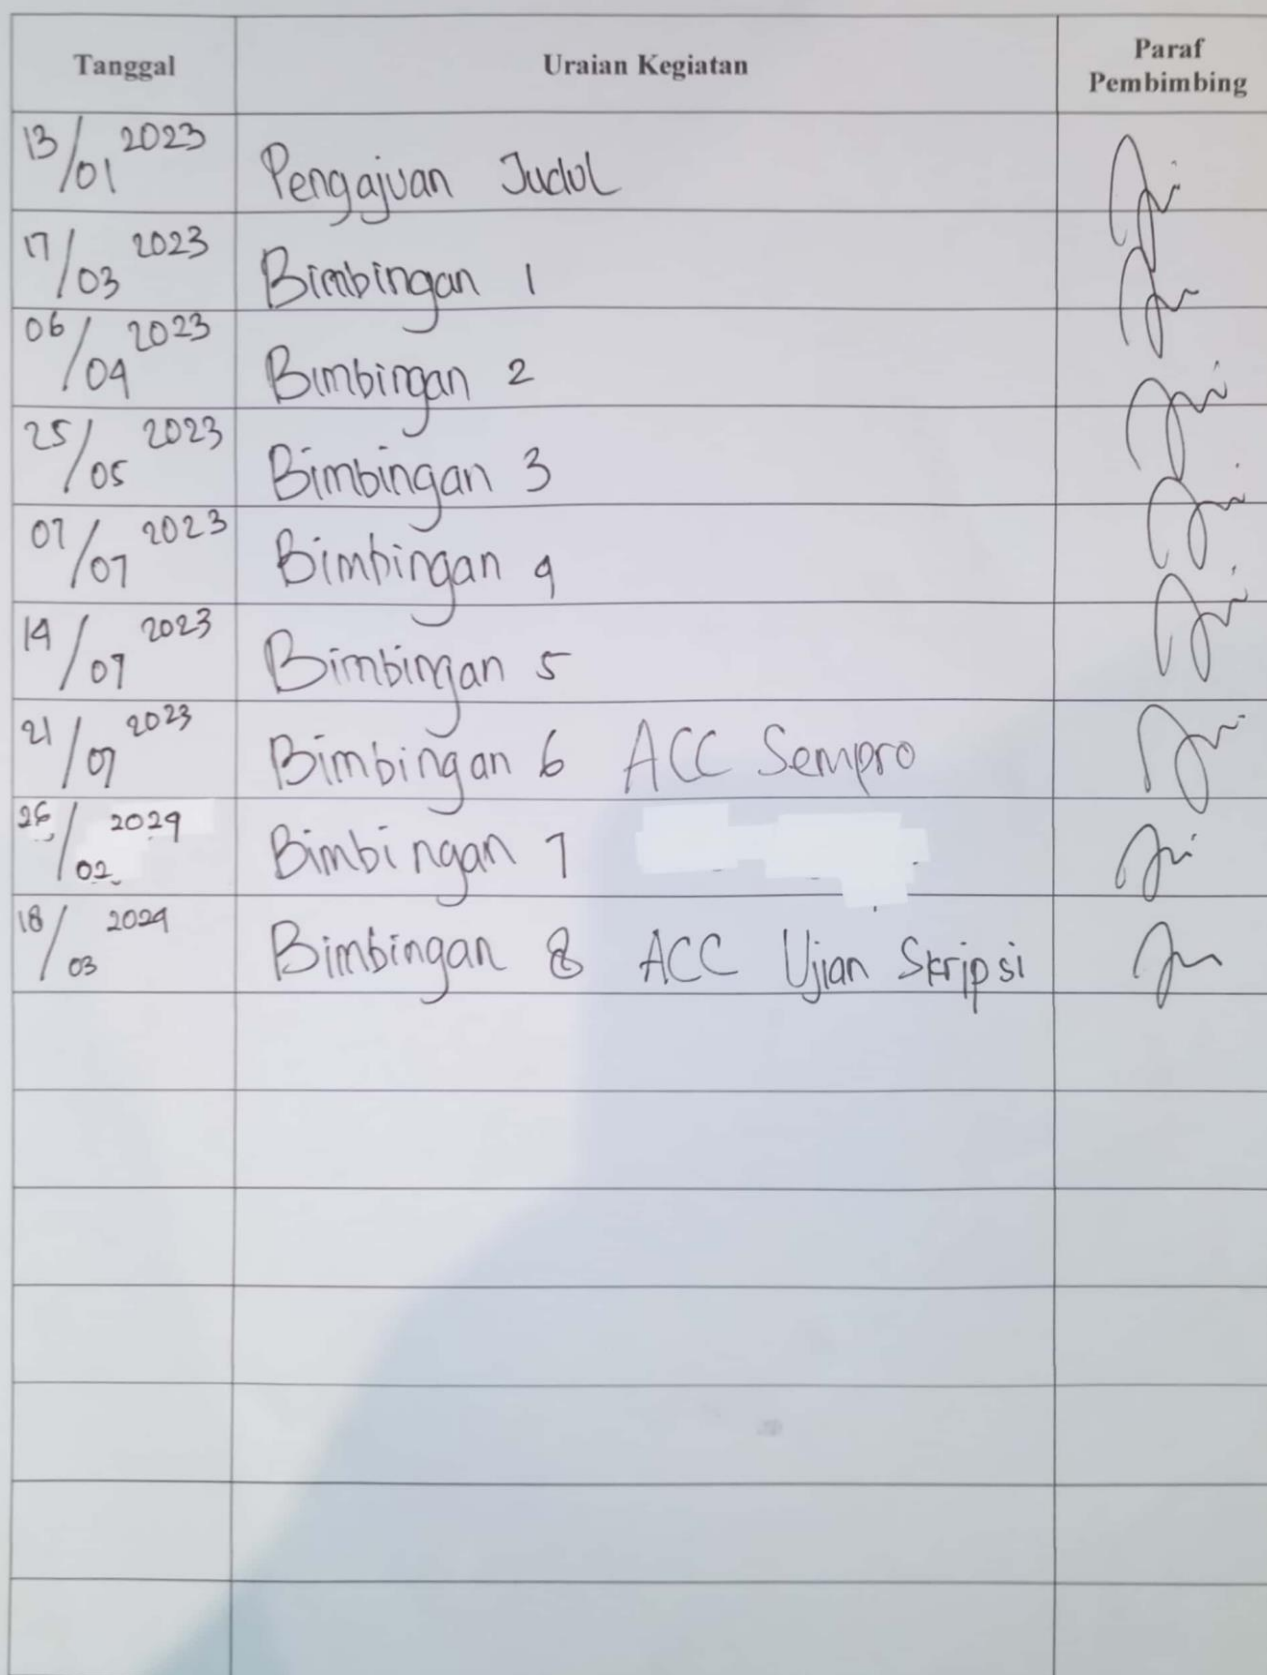 Tanggal Uraian Kegiatan Paraf Pembimbing
13/01 2023 Pengajuan Judul
17/03 2023 Bimbingan 1
06/04 2023 Bimbingan 2
25/05 2023 Bimbingan 3
07/07 2023 Bimbingan 4
14/07 2023 Bimbingan 5
21/07 2023 Bimbingan 6 ACC Sempro
26/02 2024 Bimbingan 7
18/03 2024 Bimbingan 8 ACC Ujian Skripsi